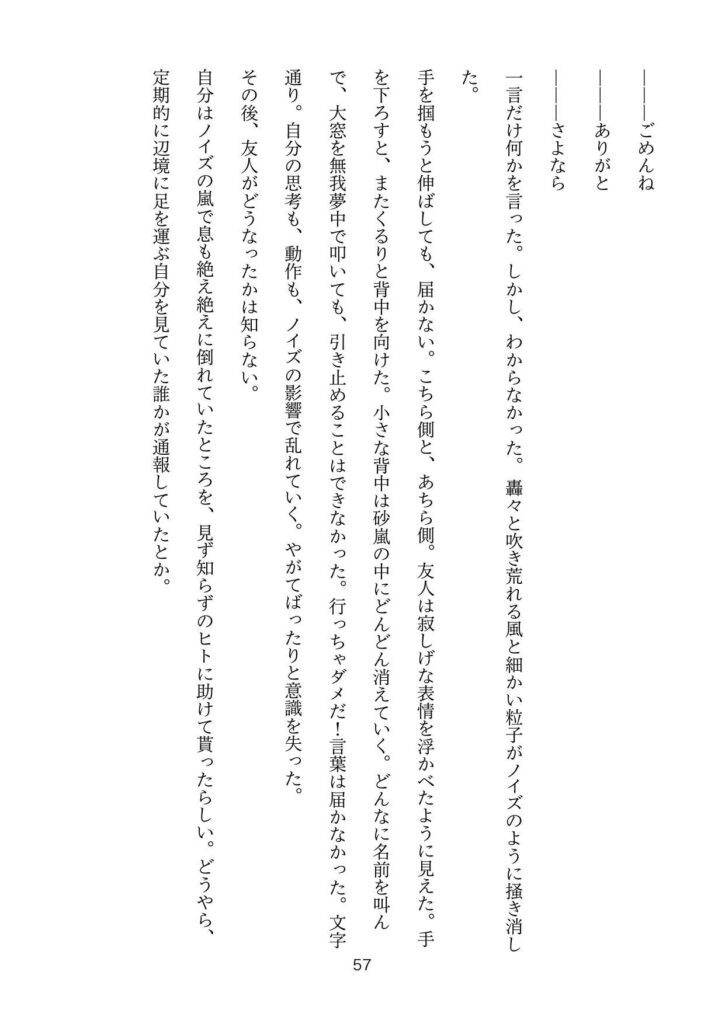 ―――ごめんね
―――ありがと
―――さよなら
一言だけ何かを言った。しかし、わからなかった。轟々と吹き荒れる風と細かい粒子がノイズのように掻き消し
た。
手を掴もうと伸ばしても、届かない。こちら側と、あちら側。友人は寂しげな表情を浮かべたように見えた。手
を下ろすと、またくるりと背中を向けた。小さな背中は砂嵐の中にどんどん消えていく。どんなに名前を叫ん
で、大窓を無我夢中で叩いても、引き止めることはできなかった。行っちゃダメだ！言葉は届かなかった。文字
通り。自分の思考も、動作も、ノイズの影響で乱れていく。やがてばったりと意識を失った。
その後、友人がどうなったかは知らない。
自分はノイズの嵐で息も絶え絶えに倒れていたところを、見ず知らずのヒトに助けて貰ったらしい。どうやら、
定期的に辺境に足を運ぶ自分を見ていた誰かが通報していたとか。
57